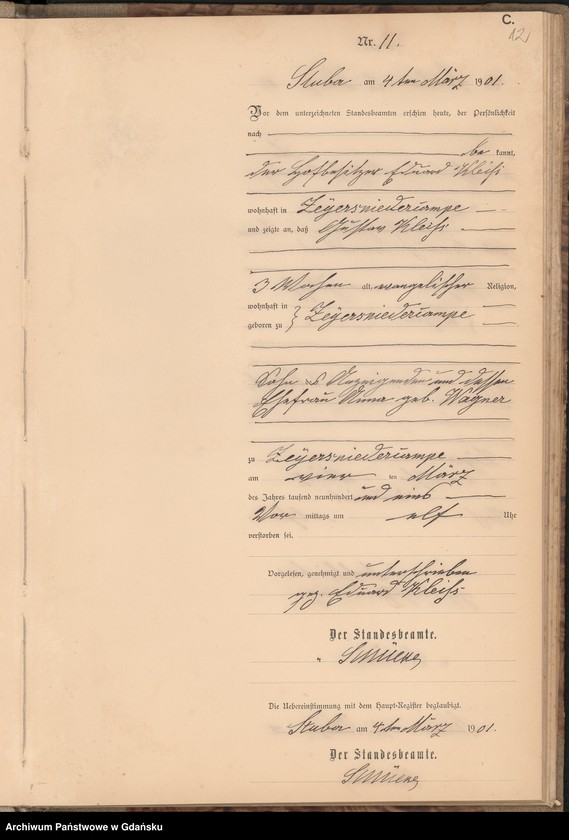 C.
12
Nr. 11.
Stuba am 4ten März 1901.
Vor dem unterzeichneten Standesbeamten erschien heute, der Persönlichkeit
nach
be kannt,
der Hofbesitzer Eduard Kleiß
wohnhaft in Zeyersniedercampe
und zeigte an, daß Gustav Kleiß
3 Wochen alt, evangelischer Religion,
wohnhaft in
geboren zu } Zeyersniedercampe
Sohn des Anzeigenden und dessen
Ehefrau Anna geb. Wagner
zu Zeyersniedercampe
am vier ten März
des Jahres tausend neunhundert und eins
Vor mittags um elf Uhr
verstorben sei.
Vorgelesen, genehmigt und unterschrieben
gez. Eduard Kleiß
Der Standesbeamte.
Die Uebereinstimmung mit dem Haupt-Register beglaubigt.
Stuba am 4ten März 1901.
Der Standesbeamte.
Archiwum Państwowe w Gdańsku